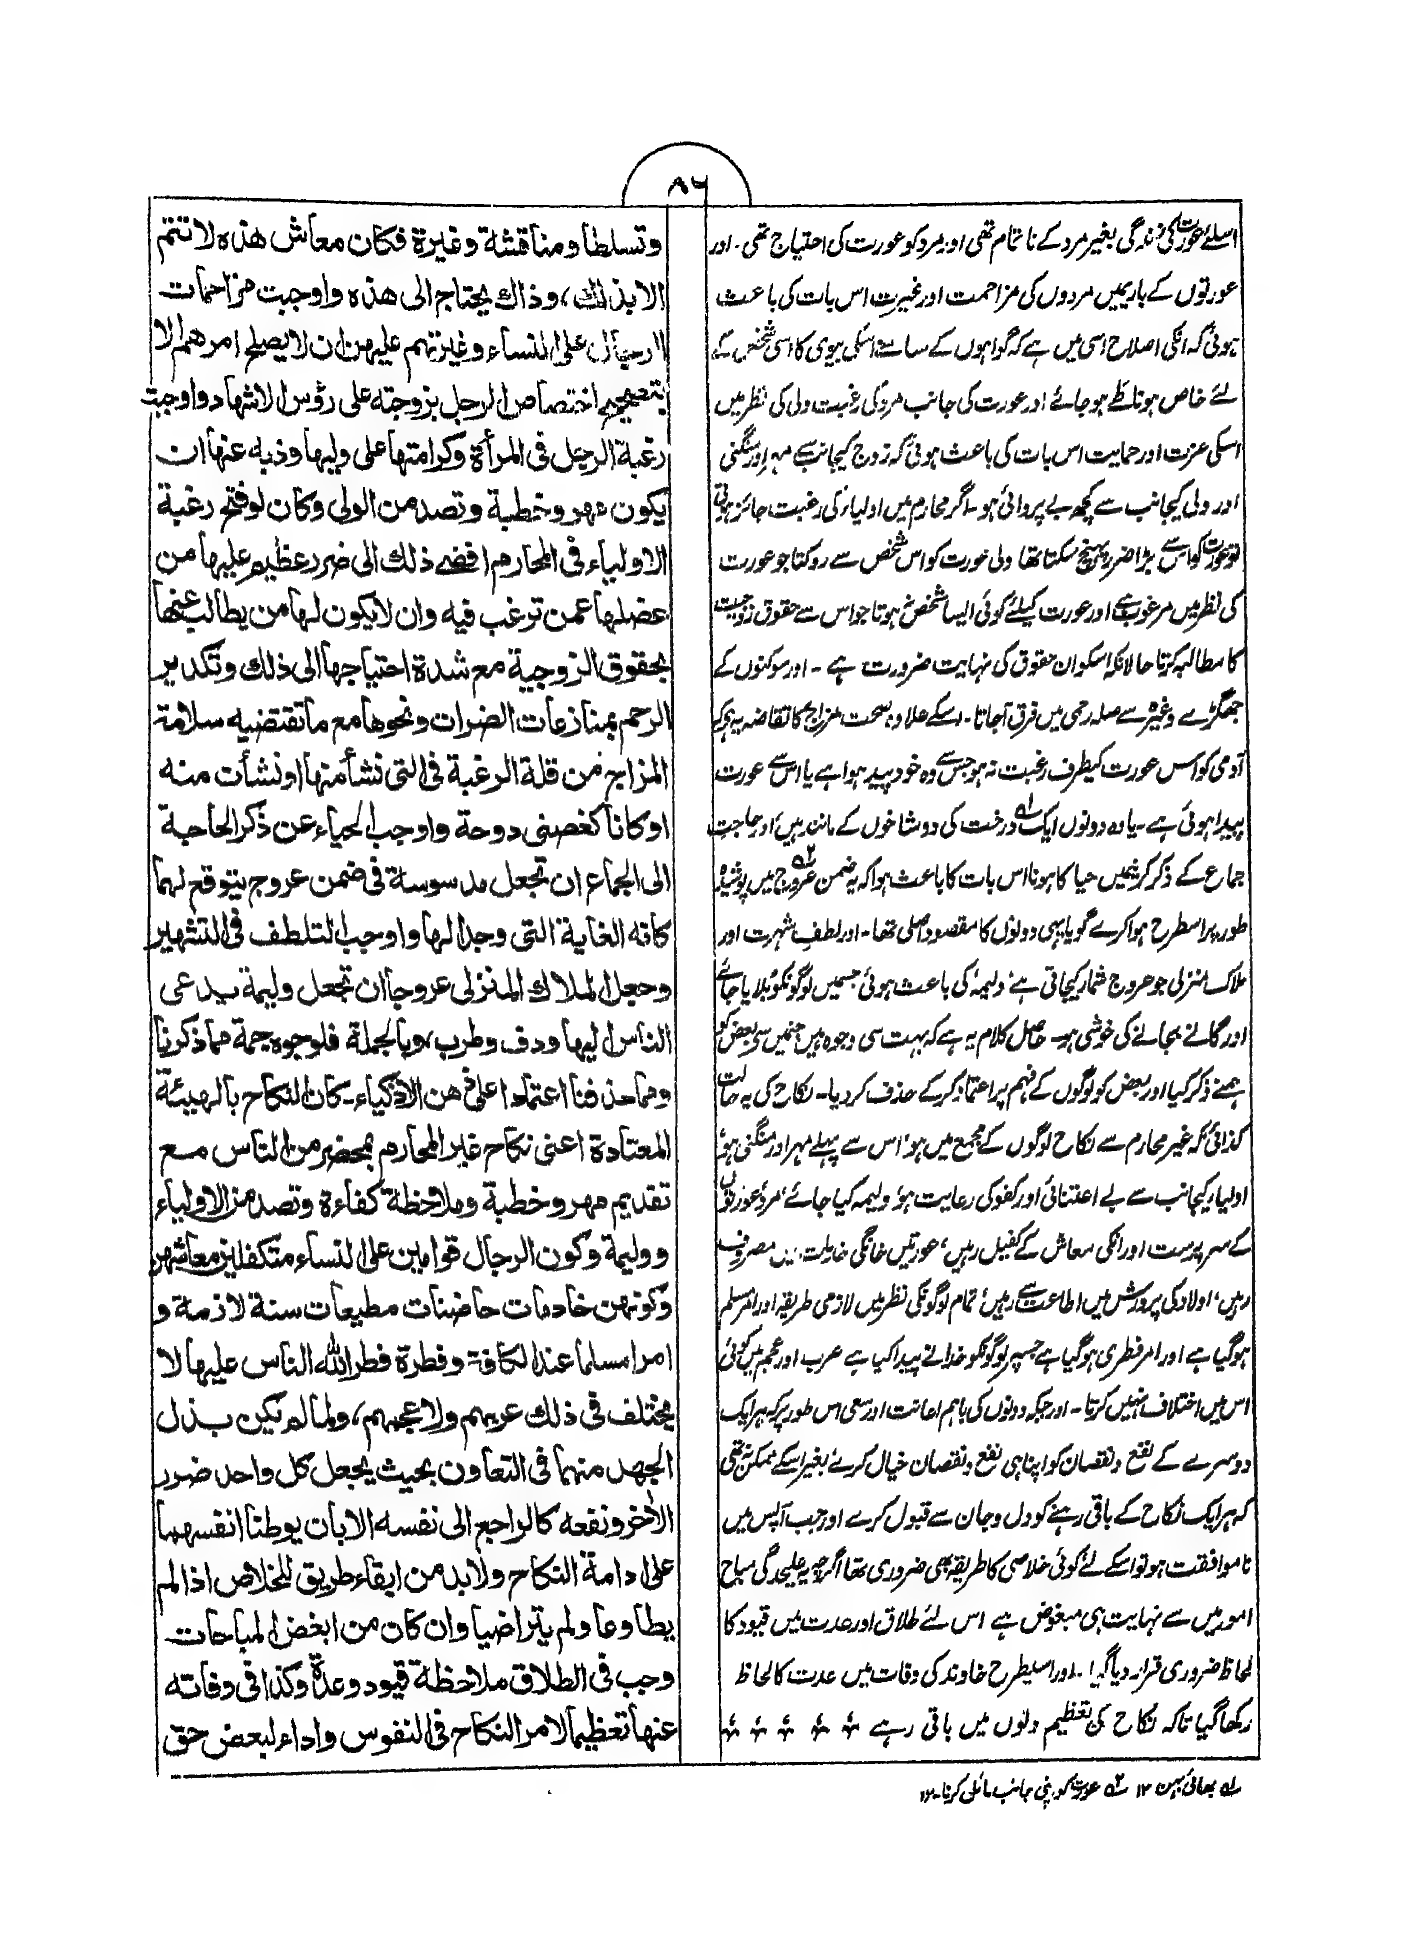 ۸۶
اسلئے عورت کی زندگی بغیر مرد کے ناتمام تھی اور مرد کو عورت کی احتیاج تھی۔ اور
عورتوں کے باریمیں مردوں کی مزاحمت اور غیرت اس بات کی باعث
ہوئی کہ انکی اصلاح اسی میں ہے کہ گواہوں کے سامنے اسکی بیوی کا اسی شخص کے
لئے خاص ہونا ظاہر ہو جائے اور عورت کی جانب مرد کی رغبت ولی کی نظر میں
اسکی عزت اور حمایت اس بات کی باعث ہوئی کہ زوج کیجانب سے مہر اور منگنی
اور ولی کیجانب سے کچھ بے پروائی ہو۔ اگر محارم میں اولیاء کی رغبت جائز ہوتی
تو عورت کو اس سے بڑا ضرر پہنچ سکتا تھا ولی عورت کو اس شخص سے روکتا جو عورت
کی نظر میں مرغوب ہے اور عورت کیلئے کوئی ایسا شخص نہ ہوتا جو اس سے حقوق زوجیت
کا مطالبہ کرتا حالانکہ اسکو ان حقوق کی نہایت ضرورت ہے ۔ اور سوکنوں کے
جھگڑے وغیرہ سے صلہ رحمی میں فرق آجاتا۔ اسکے علاوہ صحت مزاج کا تقاضہ یہ ہے کہ
آدمی کو اس عورت کیطرف رغبت نہ ہو جس سے وہ خود پیدا ہوا ہے یا اس سے عورت
پیدا ہوئی ہے۔ یا وہ دونوں ایک درخت کی دو شاخوں کے مانند ہیں، اور حاجت
جماع کے ذکر کرنیمیں حیا کا ہونا اس بات کا باعث ہوا کہ یہ ضمن عروج میں پوشیدہ
طور پر اسطرح ہوا کرے گویا یہی دونوں کا مقصود اصلی تھا۔ اور لطف شہرت اور
ملاک منزلی جو عروج شمار کیجاتی ہے، ولیمہ کی باعث ہوئی جسمیں لوگونکو بلایا جائے
اور گانے بجانے کی خوشی ہو۔ حاصل کلام یہ ہے کہ بہت سی وجوہ ہیں جنمیں سے بعض کو
ہمنے ذکر کیا اور بعض کو لوگوں کے فہم پر اعتماد کر کے حذف کر دیا۔ نکاح کی یہ حالت
کذائی کہ غیر محارم سے نکاح لوگوں کے مجمع میں ہو، اس سے پہلے مہر اور منگنی ہو،
اولیاء کیجانب سے بے اعتنائی اور کفو کی رعایت ہو، ولیمہ کیا جائے، مرد عورتوں
کے سرپرست اور انکی معاش کے کفیل رہیں، عورتیں خانگی خدمات میں مصروف
رہیں، اولاد کی پرورش میں اطاعت سے رہیں، تمام لوگونکی نظر میں لازمی طریقہ اور امر مسلم
ہو گیا ہے اور امر فطری ہو گیا ہے جسپر لوگونکو خدا نے پیدا کیا ہے عرب اور عجم میں کوئی
اس میں اختلاف نہیں کرتا۔ اور جبکہ دونوں کی باہم اعانت اور سعی اس طور پر کہ ہر ایک
دوسرے کے نفع و نقصان کو اپنا ہی نفع و نقصان خیال کرے، بغیر اسکے ممکن نہ تھی
کہ ہر ایک نکاح کے باقی رہنے کو دل و جان سے قبول کرے اور جب آپس میں
ناموافقت ہو تو اسکے لئے کوئی خلاصی کا طریقہ بھی ضروری تھا اگرچہ یہ علیحدگی مباح
امور میں سے نہایت ہی مبغوض ہے اس لئے طلاق اور عدت میں قیود کا
لحاظ ضروری قرار دیا گیا۔ اور اسیطرح خاوند کی وفات میں عدت کا لحاظ
رکھا گیا تاکہ نکاح کی تعظیم دلوں میں باقی رہے
لہ بھائی بہن ۱۲ ۲ہ عورت کو اپنی جانب مائل کرنا۔ ۱۲
وتسلطا ومناقشة وغيرة فكان معاش هذه لا تتم
الا بذلك، وذاك يحتاج الى هذه واوجبت مزاحمات
الرجال على النساء وغيرتهم عليهن ان لا يصلح امرهم الا
بتصحيح اختصاص الرجل بزوجته على رؤس الاشهاد واوجبت
رغبة الرجل فى المرأة وكرامتها على وليها وذبه عنها ان
يكون مهر وخطبة وتصد من الولى وكان لو فتح رغبة
الاولياء فى المحارم افضى ذلك الى ضرر عظيم عليها من
عضلها عمن ترغب فيه وان لا يكون لها من يطالب عنها
بحقوق الزوجية مع شدة احتياجها الى ذلك وتكدير
الرحم بمنازعات الضرات ونحوها مع ما تقتضيه سلامة
المزاج من قلة الرغبة فى التى نشأ منها او نشأت منه
او كانا كغصنى دوحة واوجب الحياء عن ذكر الحاجة
الى الجماع ان تجعل مدسوسة فى ضمن عروج يتوقع لهما
كانه الغاية التى وجدا لها واوجب التلطف فى التشهير
وجعل الملاك المنزلى عروجا ان تجعل وليمة يدعى
الناس اليها ودف وطرب، وبالجملة فلوجوه جمة مما ذكرنا
ومما حذفنا اعتمادا على ذهن الاذكياء۔ كان النكاح بالهيئة
المعتادة اعنى نكاح غير المحارم بمحضر من الناس مع
تقديم مهر وخطبة وملاحظة كفاءة وتصد من الاولياء
ووليمة وكون الرجال قوامين على النساء متكفلين معاشهن
وكونهن خادمات حاضنات مطيعات سنة لازمة و
امرا مسلما عند الكافة وفطرة فطر الله الناس عليها لا
يختلف فى ذلك عربهم ولا عجمهم، ولما لم يكن بذل
الجهد منهما فى التعاون بحيث يجعل كل واحد ضرر
الأخر ونفعه كالراجع الى نفسه الا بان يوطنا انفسهما
على ادامة النكاح ولابد من ابقاء طريق للخلاص اذا لم
يطاوعا ولم يتراضيا وان كان من ابغض المباحات
وجب فى الطلاق ملاحظة قيود وعدة وكذا فى وفاته
عنها تعظيما لامر النكاح فى النفوس واداء لبعض حق